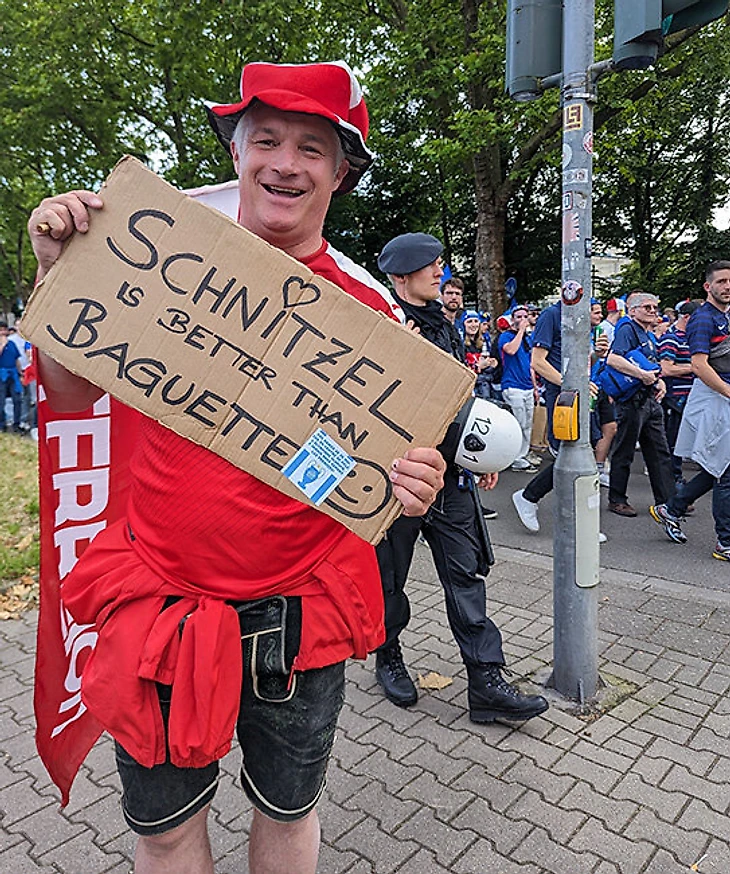 SCHNITZEL
IS BETTER THAN
BAGUETTE
12 1